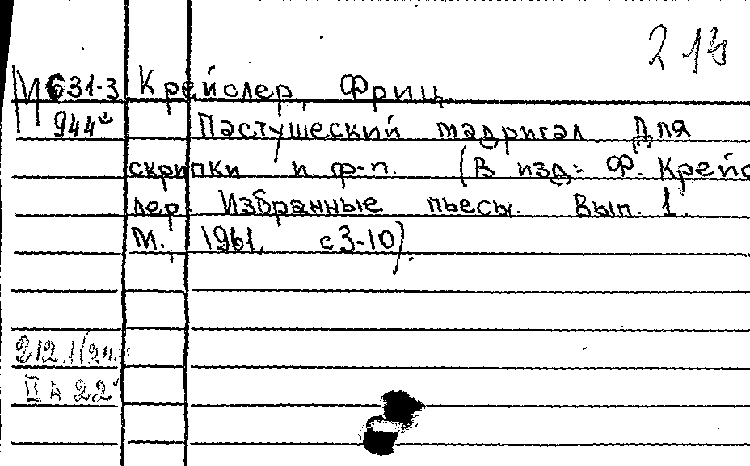 213
М631-3 Крейслер, Фриц
944 Пастушеский мадригал для
скрипки и ф-п. (В изд: Ф. Крейс
лер Избранные пьесы. Вып. 1.
М., 1961. с3-10).
212.1/
II А 22